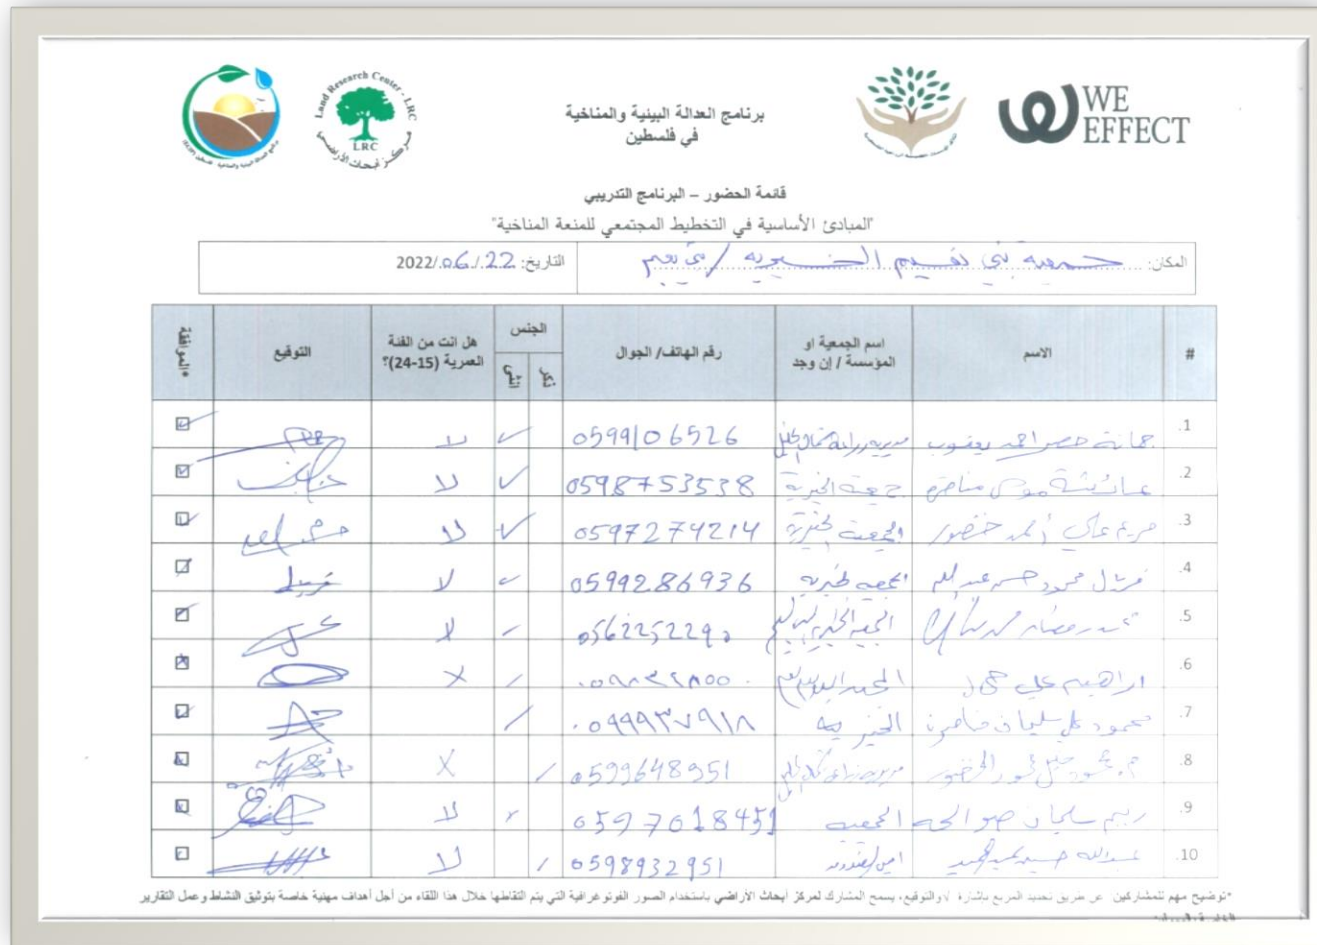 Land Research Center - LRC
LRC
مركز أبحاث الأراضي
برنامج العدالة البيئية والمناخية
في فلسطين
WE
EFFECT
قائمة الحضور – البرنامج التدريبي
"المبادئ الأساسية في التخطيط المجتمعي للمنعة المناخية"
المكان: جمعية بني نعيم الخيرية / بني نعيم التاريخ: 22/06/2022
# الاسم اسم الجمعية او المؤسسة / إن وجد رقم الهاتف/ الجوال الجنس ذكر انثى هل انت من الفئة العمرية (15-24)؟ التوقيع الموافقة*
.1 جمانة احمد يعقوب مديرية زراعة شمال الخليل 0599106526 لا
.2 عائشة موسى مناصرة جمعية الخيرية 0598753538 لا
.3 مريم علي أحمد خضور الجمعية الخيرية 0597274214 لا
.4 فريال محمود حسن عبد الله الجمعيه الخيريه 0599286936 لا
.5 رمضان محمد الجمعية الخيرية 0562252290 لا
.6 ابراهيم علي X
.7 محمود علي سليمان مناصرة الخيرية ٠٥٩٩٩٣٧٩١٨
.8 م. محمود خليل مديرية زراعة شمال الخليل 0599648951 X
.9 ريم سلمان صوالحه الجمعيه 0597018451 لا
.10 عبدالله حسين عبد الحميد امين 0598932951 لا
*توضيح مهم للمشاركين: عن طريق تحديد المربع باشارة √ والتوقيع، يسمح المشارك لمركز أبحاث الأراضي باستخدام الصور الفوتوغرافية التي يتم التقاطها خلال هذا اللقاء من أجل أهداف مهنية خاصة بتوثيق النشاط وعمل التقارير